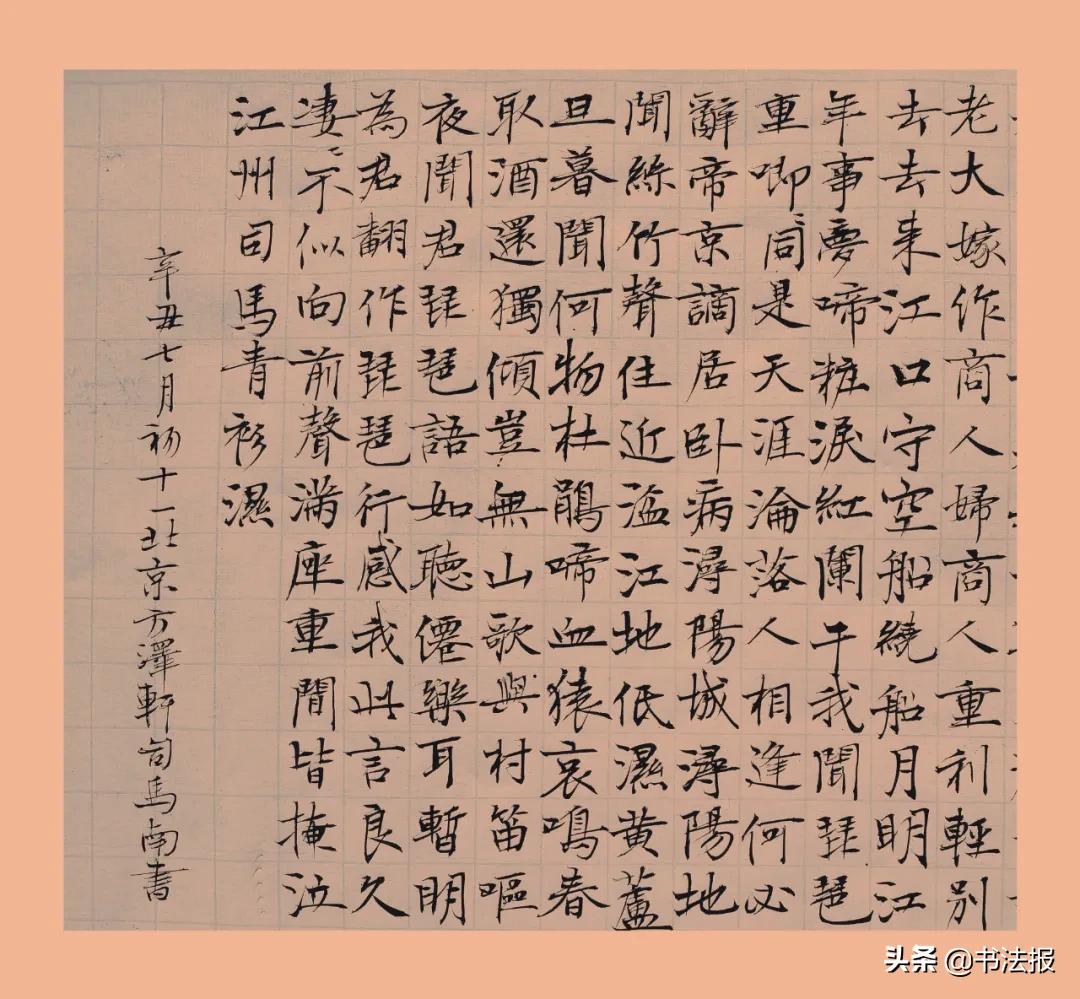 老大嫁作商人婦商人重利輕別
去去来江口守空船繞船月明江
年事夢啼粧淚紅闌干我聞琵琶
重唧〻同是天涯淪落人相逢何必
辭帝京謫居卧病潯陽城潯陽地
聞絲竹聲住近湓江地低濕黄蘆
旦暮聞何物杜鵑啼血猿哀鳴春
取酒還獨傾豈無山歌與村笛嘔
夜聞君琵琶語如聽僊樂耳暫明
為君翻作琵琶行感我此言良久
凄〻不似向前聲滿座重聞皆掩泣
江州司馬青衫濕
辛丑七月初十一北京方澤軒司馬南書
头条 @书法报